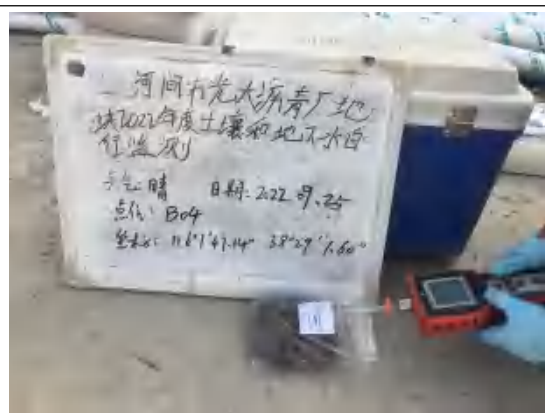 河间市光大沥青厂地
块2022年度土壤和地下水自
行监测
天气: 晴 日期: 2022.9.25
点位: B04
坐标: 116°1'47.14" 38°29'